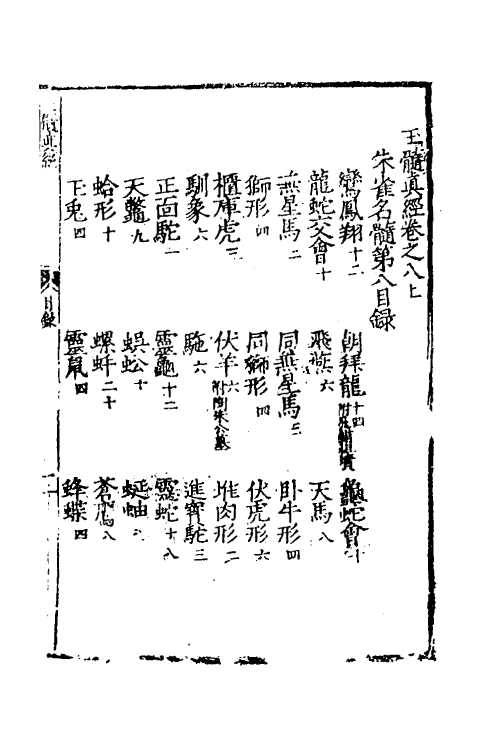 玉髓真經卷之八上
朱雀名髓第八目録
鸞鳳翔十二 朝拜龍十四 龜蛇會十
龍蛇交會十 飛旗六 天馬八
無星馬二 同無星馬三 卧牛形四
獅形四 同獅形四 伏虎形六
櫃庫虎三 伏羊六附陶朱公墓 堆肉形二
馴象六 駞六 進寳駝三
正面駝一 靈龜十二 靈蛇十八
天鼈九 蜈蚣十 蜒蚰
蛤形十 螺蚌二十 蒼鷹八
玉兎四 靈鼠四 蜂蝶四
髓真經
目録
一